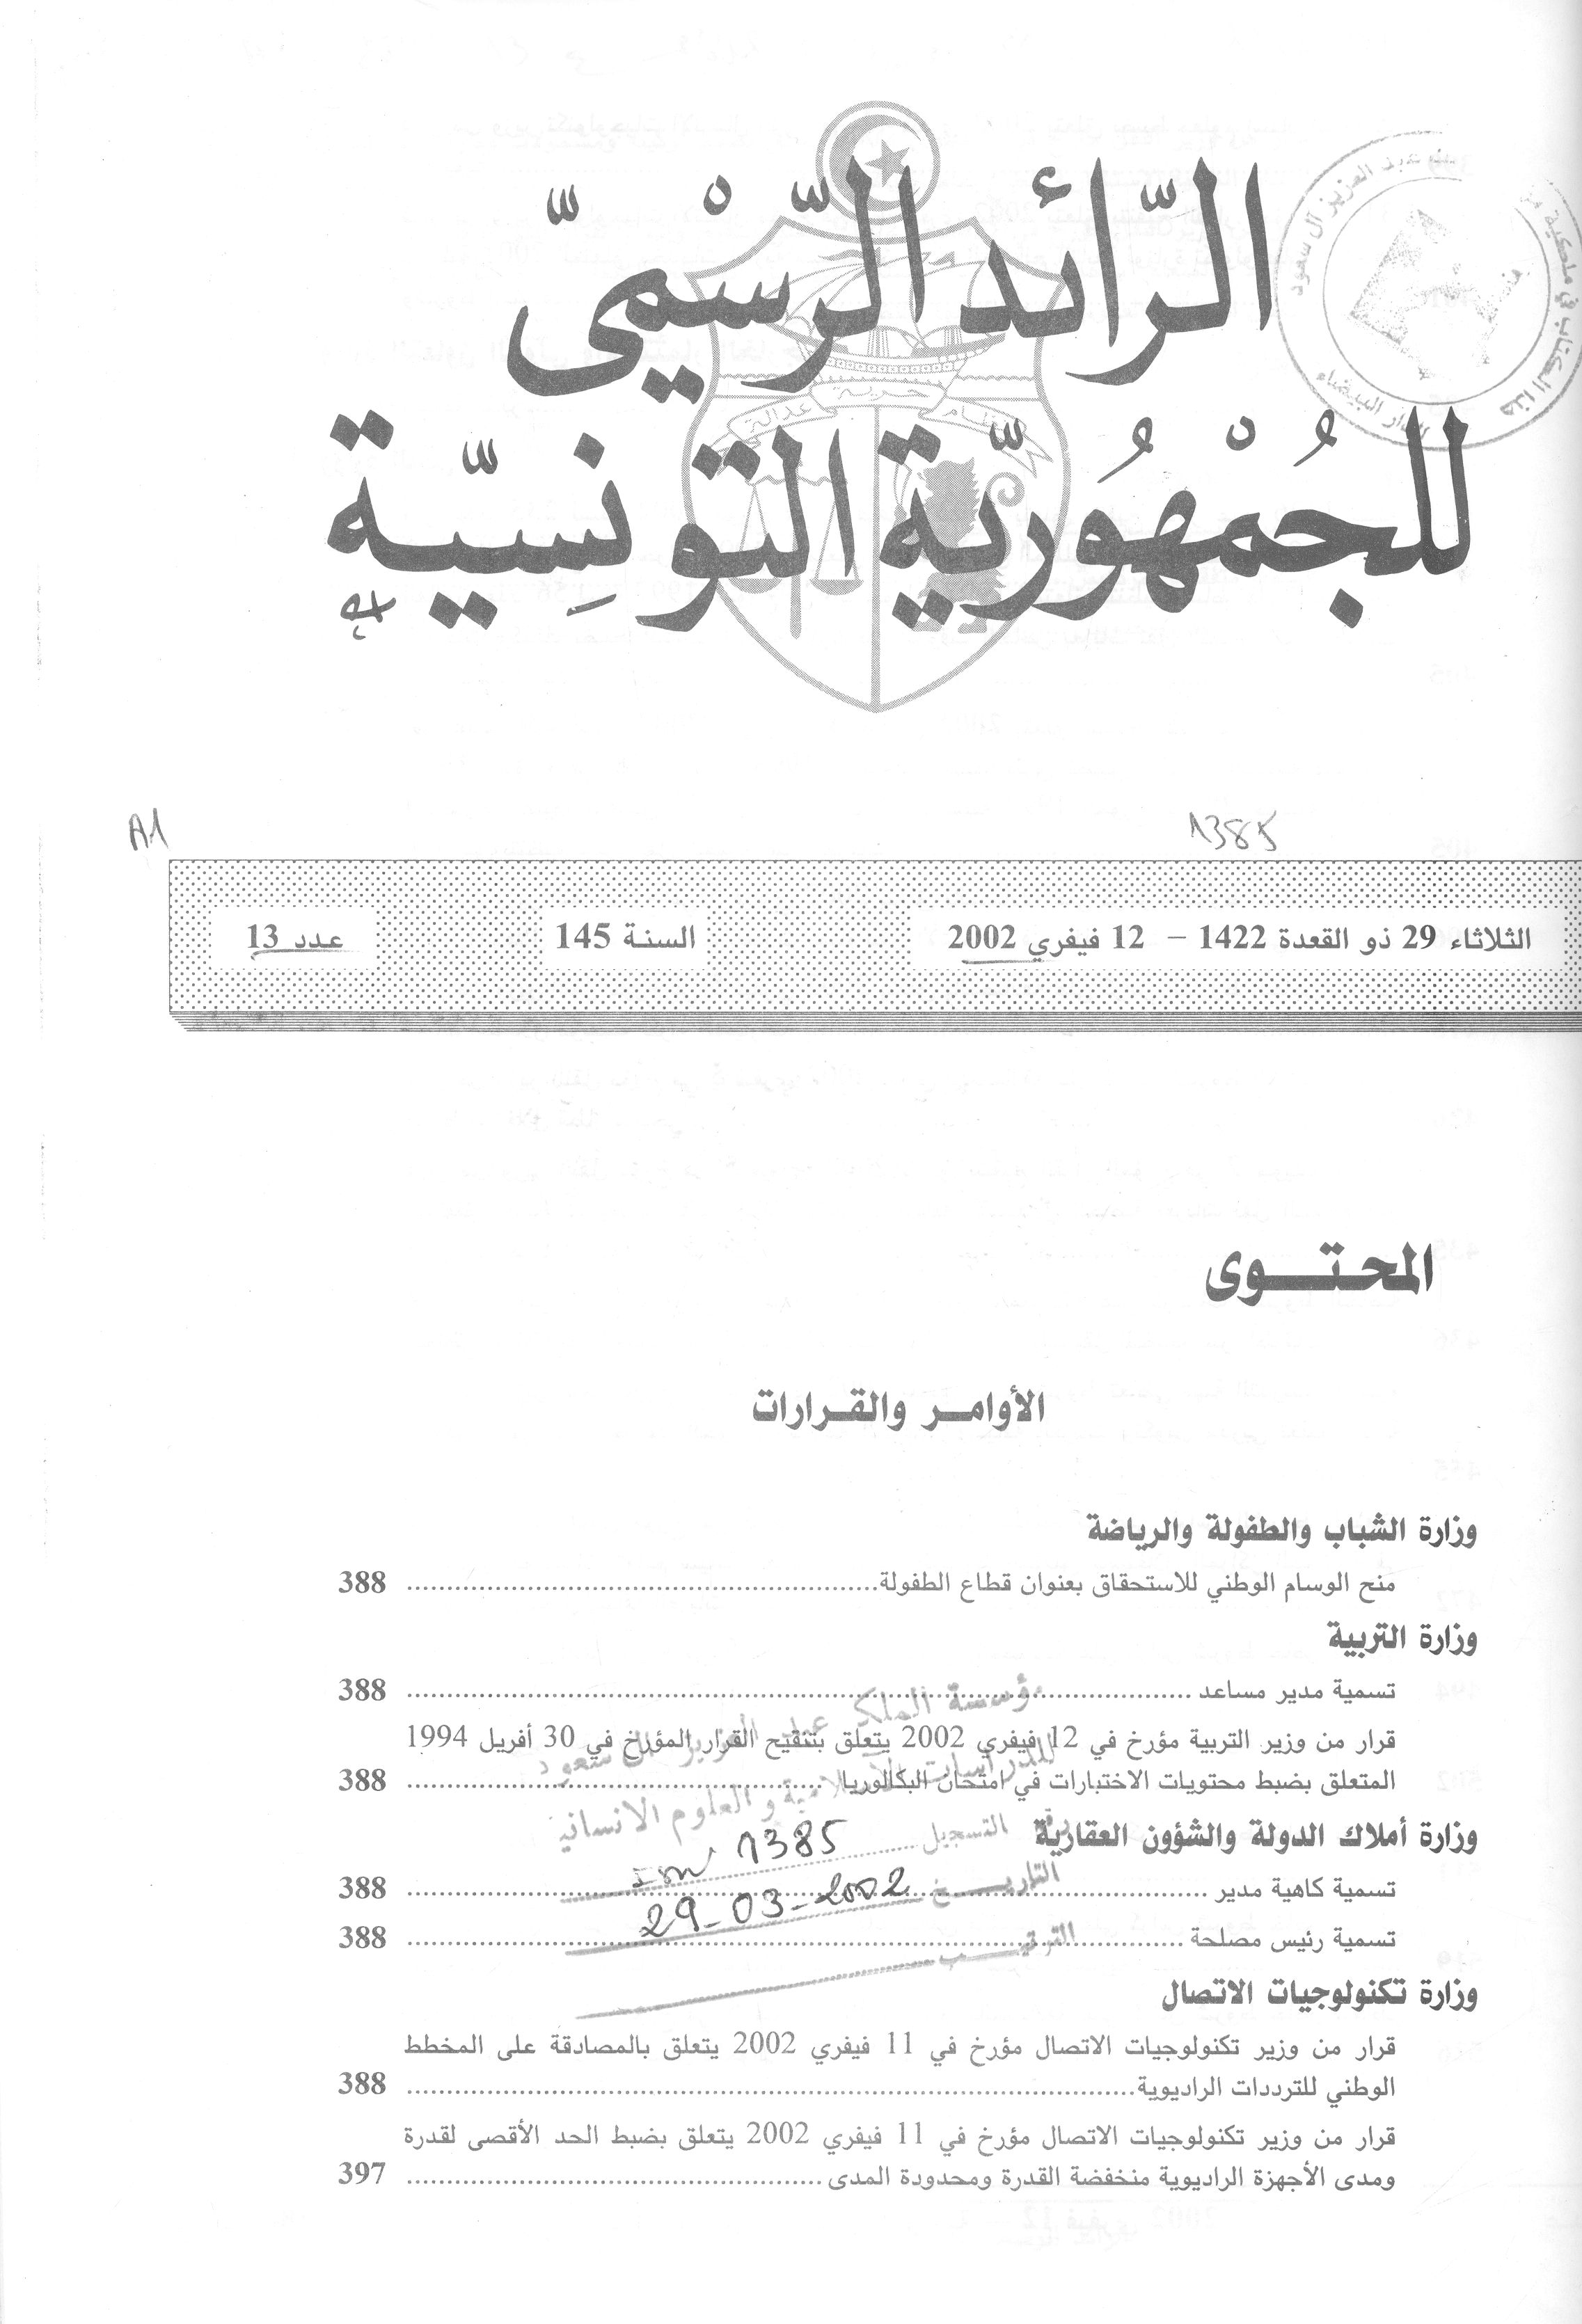 الرّائد الرّسْميّ
نظام حرية عدالة
للجُمْهُوريّة التونِسيّة
هذا الكتاب في ملكية
عبد العزيز آل سعود
الدار البيضاء
A1
1385
الثلاثاء 29 ذو القعدة 1422 – 12 فيفري 2002
السنة 145
عدد 13
المحتوى
الأوامر والقرارات
وزارة الشباب والطفولة والرياضة
منح الوسام الوطني للاستحقاق بعنوان قطاع الطفولة ........ 388
وزارة التربية
تسمية مدير مساعد ........ 388
قرار من وزير التربية مؤرخ في 12 فيفري 2002 يتعلق بتنقيح القرار المؤرخ في 30 أفريل 1994
المتعلق بضبط محتويات الاختبارات في امتحان البكالوريا ........ 388
وزارة أملاك الدولة والشؤون العقارية
تسمية كاهية مدير ........ 388
تسمية رئيس مصلحة ........ 388
وزارة تكنولوجيات الاتصال
قرار من وزير تكنولوجيات الاتصال مؤرخ في 11 فيفري 2002 يتعلق بالمصادقة على المخطط
الوطني للترددات الراديوية ........ 388
قرار من وزير تكنولوجيات الاتصال مؤرخ في 11 فيفري 2002 يتعلق بضبط الحد الأقصى لقدرة
ومدى الأجهزة الراديوية منخفضة القدرة ومحدودة المدى ........ 397
مؤسسة الملك عبد العزيز آل سعود
للدراسات الاسلامية والعلوم الانسانية
رقم التسجيل 1385
التاريخ 29-03-2002
الترتيب